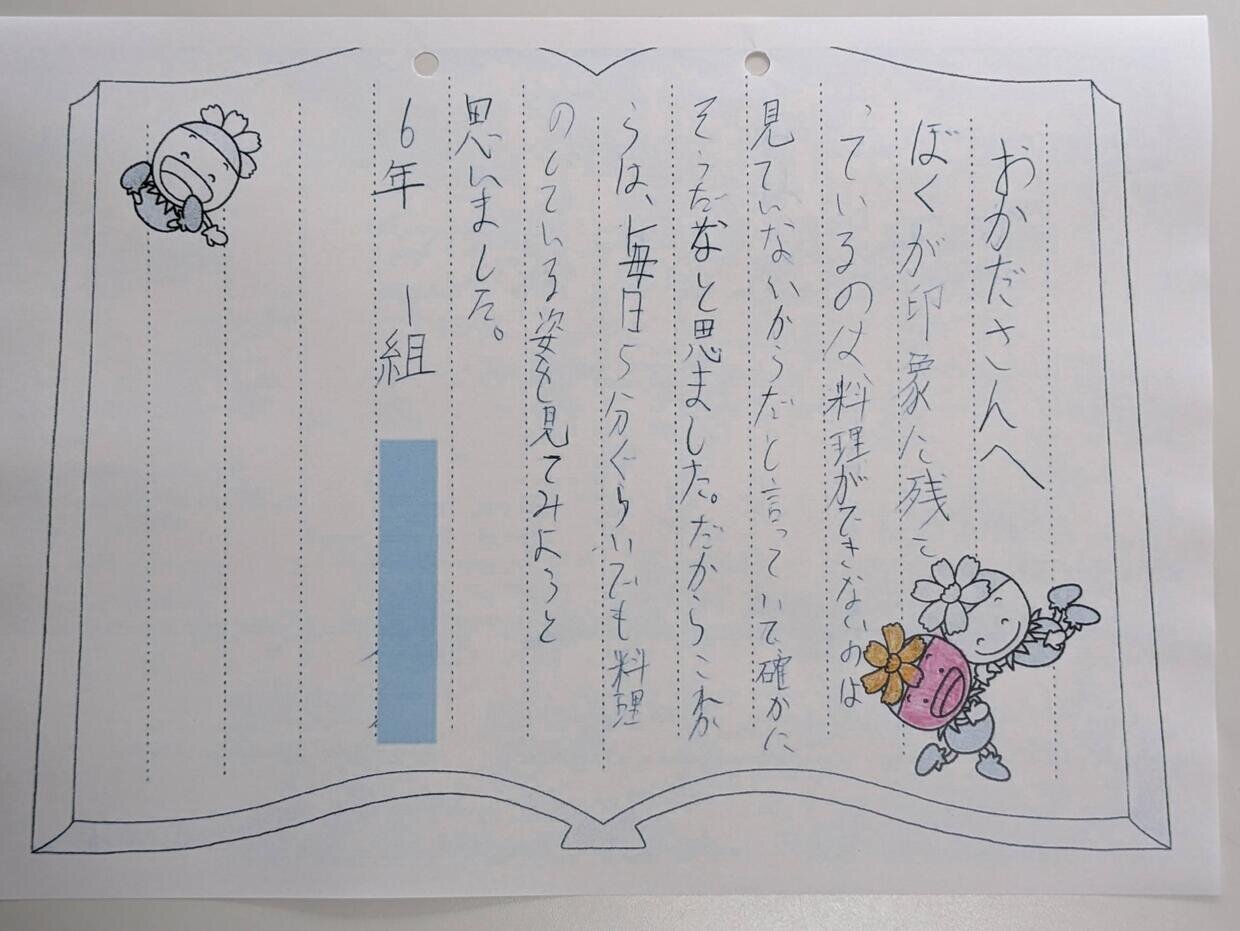 おかださんへ
ぼくが印象た残こ
っているのは、料理ができないのは
見ていないからだと言っていて確かに
そうだなと思ました。だからこれか
らは、毎日5分ぐらいでも料理
のしている姿を見てみようと
思いました。
6年 1組